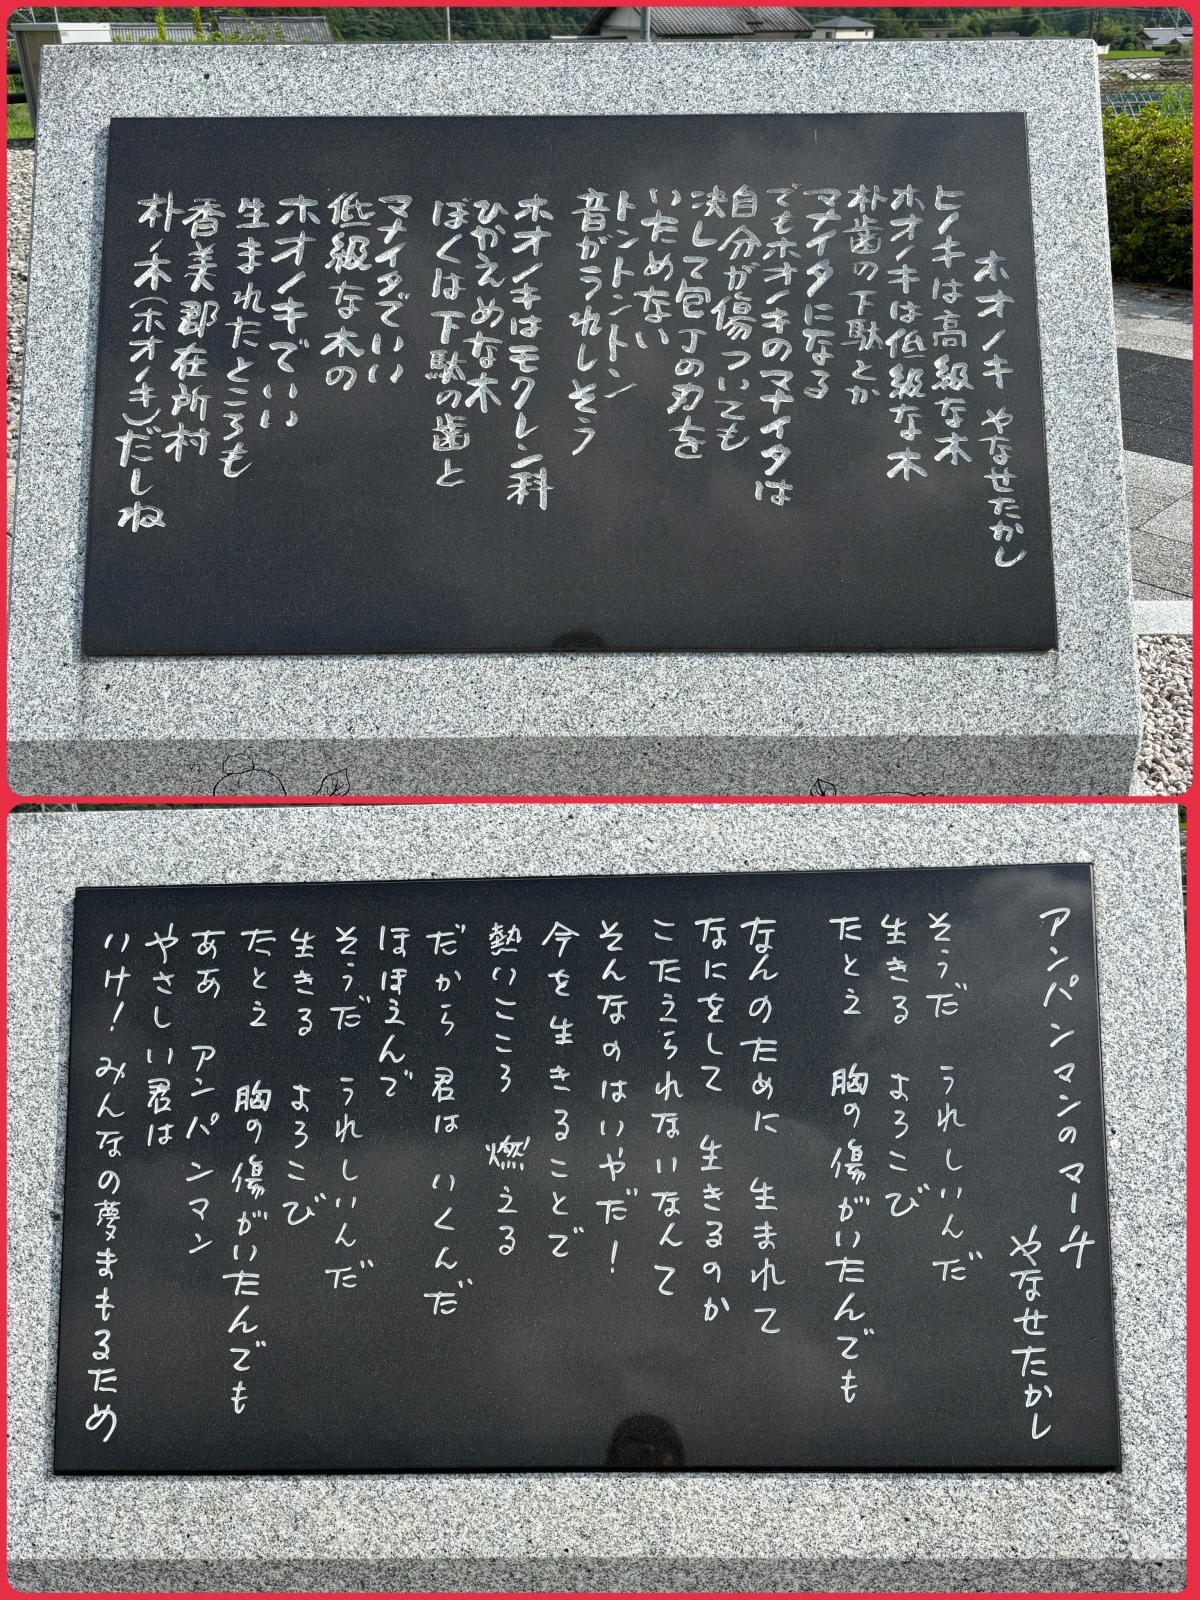 ホオノキ やなせたかし
ヒノキは高級な木
ホオノキは低級な木
朴歯の下駄とか
マナイタになる
でもホオノキのマナイタは
自分が傷ついても
決して包丁の刃を
いためない
トントントントン
音がうれしそう
ホオノキはモクレン科
ひかえめな木
ぼくは下駄の歯と
マナイタでいい
低級な木の
ホオノキでいい
生まれたところも
香美郡在所村
朴ノ木(ホオノキ)だしね
アンパンマンのマーチ
やなせたかし
そうだ うれしいんだ
生きる よろこび
たとえ 胸の傷がいたんでも
なんのために 生まれて
なにをして 生きるのか
こたえられないなんて
そんなのはいやだ!
今を生きることで
熱いこころ 燃える
だから 君は いくんだ
ほほえんで
そうだ うれしいんだ
生きる よろこび
たとえ 胸の傷がいたんでも
ああ アンパンマン
やさしい君は
いけ! みんなの夢まもるため